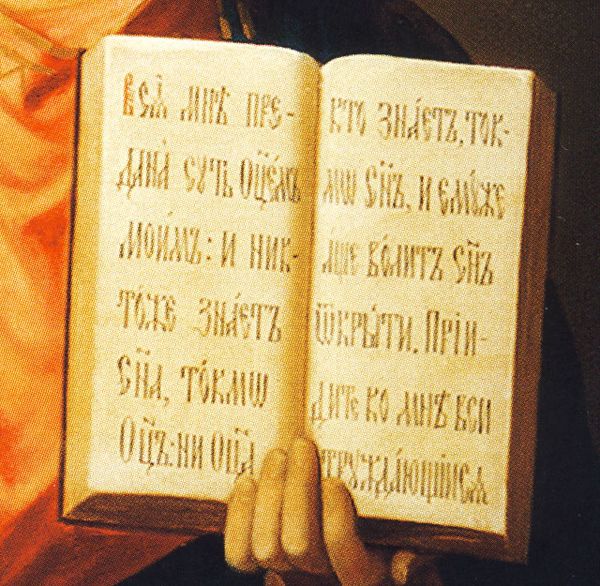 всѧ҄ мнѣ̀ пре-
дана̀ сꙋть Оц҃е́мъ
мои́мъ: и ник-
то́же зна́етъ
сн҃а, то́кмѡ
Оц҃ъ: ни Оц҃а
кто зна́етъ, ток-
мѡ сн҃ъ, и емꙋ́же
а́ще во́литъ сн҃ъ
ѿкры́ти. Прїи-
дите ко мнѣ̀ вси
трꙋжда́ющїисѧ